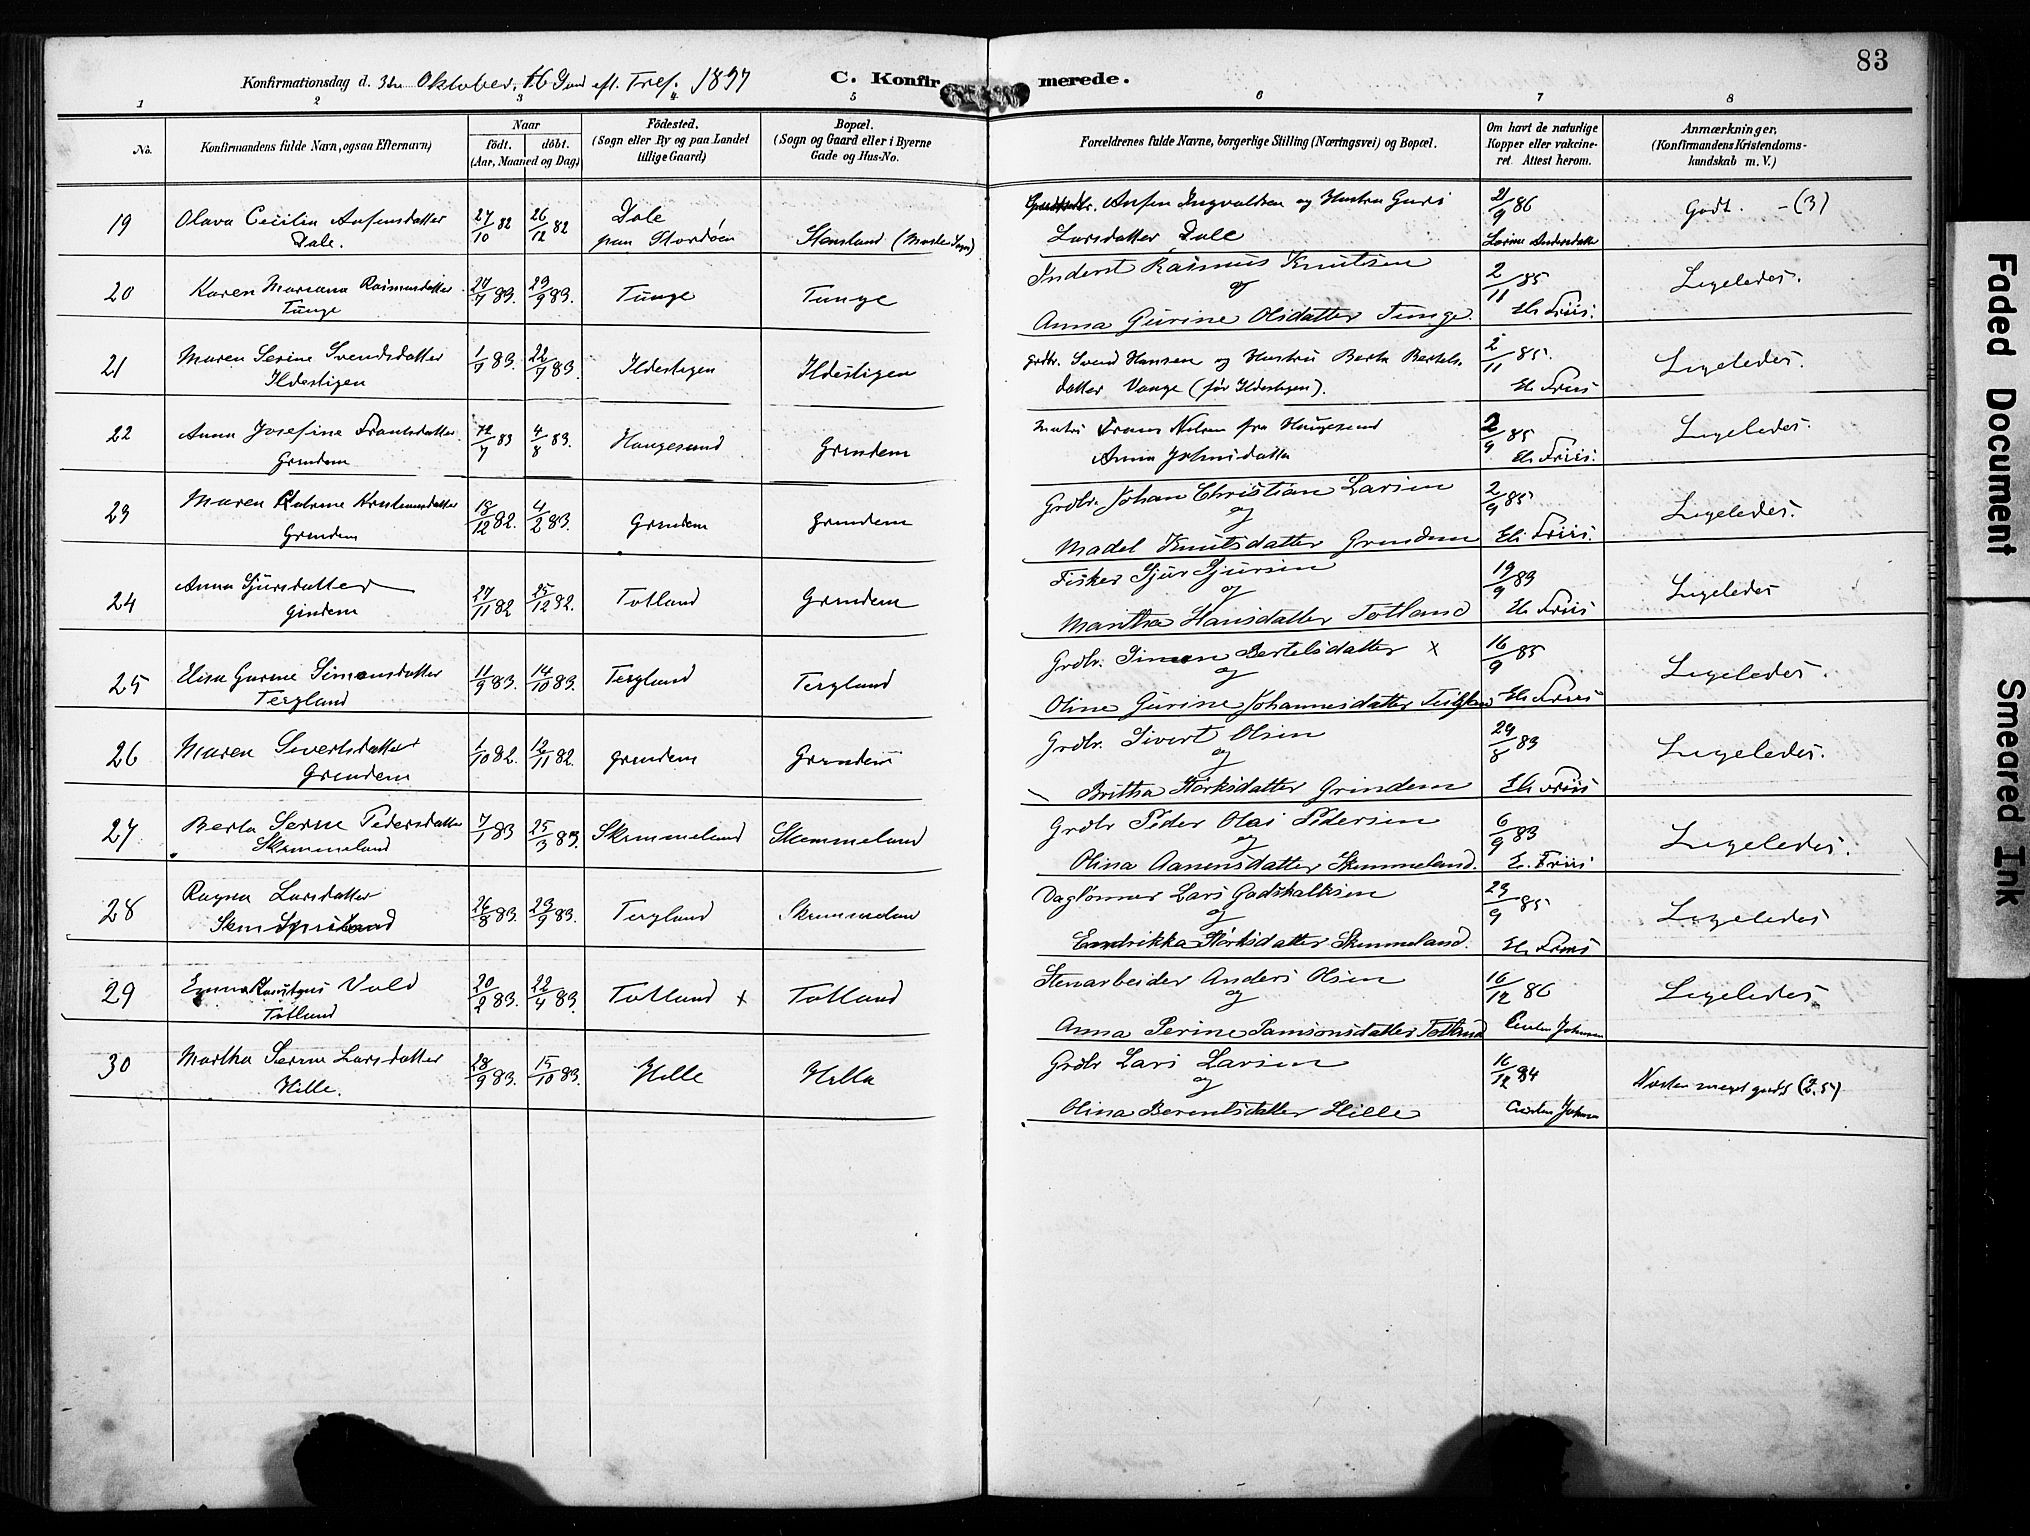 83
Konfirmationsdag d. 3die Oktober, 16 Sønd eft. Tref. 1897 C. Konfirmerede.
1 2 3 4 5 6 7 8
No. Konfirmandens fulde Navn, ogsaa Efternavn) Naar født. døbt. (Aar, Maaned og Dag) Födested. (Sogn eller By og paa Landet tillige Gaard) Bopæl. (Sogn og Gaard eller i Byerne Gade og Hus-No. Forældrenes fulde Navne, borgerlige Stilling (Næringsvei) og Bopæl. Om havt de naturlige Kopper eller vakcineret. Attest herom. Anmærkninger, (Konfirmandens Kristendomskundskab m. V.)
19 Olava Cecilia Anfinsdatter 27/10 82 26/12 82 Dale Anfin Ingvaldsen og Hustru Guri 21/9 86 Godt. - (3)
Dale. paa Stordøen Larsdatter Dale Andersdatter
20 Karen Mariana Rasmusdatter 27/7 83. 23/9 83. Tunge Tunge Inderst Rasmus Knutsen 2/11 85 Ligeledes.
Tunge og Eli Friis.
Anna Gurine Olsdatter Tunge.
21 Maren Serine Svendsdatter 1/7 83. 22/7 83. Ildestigen Ildestigen Grdbr. Svend Hansen og Hustru Berta Bertels- 2/11 85. Ligeledes.
Ildestigen datter Vange (før Ildestigen). Eli Friis
22 Anna Josefine Frantsdatter 12/7 83 4/8 83. Haugesund Grindem Frans Nilsen fra Haugesund 2/9 85 Ligeledes.
Grindem Anna Eli Friis.
23 Maren Kristensdatter 18/12 82. 4/2 83. Grindem Grindem Grdbr. Johan Christian Larsen 2/9 85 Ligeledes.
Grindem og
Madel Knutsdatter Grindem Eli Friis.
24 Anna Sjursdatter 27/11 82 25/12 82. Totland Grindem Fisker Sjur Sjursen 19/9 83 Ligeledes
Gindem og
Martha Hansdatter Totland Eli Friis
25 Elisa Gurine Simonsdatter 11/9 83. 14/10 83. Tergland Tergland Grdbr. Simon Bertelsdatter x 16/9 85 Ligeledes.
Tergland og
Oline Gurine Johannesdatter Eli Friis
26 Maren Sivertsdatter 1/10 82. 12/11 82. Grindem Grindem Grdbr. Sivert Olsen 29/8 83 Ligeledes.
Grindem og
Britha Størksdatter Grindem Eli Friis
27 Berta Serine Pedersdatter 7/1 83 25/3 83. Skimmeland Skimmeland Grdbr Peder Olai Pedersen 6/9 83 Ligeledes.
Skimmeland og
Olina Aanensdatter Skimmeland. E. Friis
28 Ragna Larsdatter 26/8 83. 23/9 83. Tergland Skimmeland Daglønner Lars Godskalksen 23/9 85 Ligeledes
og
Endrikka Størksdatter Skimmeland. Eli Friis
29 Emma Vold 20/2 83. 22/4 83. Totland x Totland Stenarbeider Anders Olsen 16/12 86 Ligeledes
Totland og
Anna Serine Samsonsdatter Totland
30 Martha Serine Larsdatter 28/9 83. 15/10 83. Hille Hille Grdbr Lars Larsen 16/12 84 Næsten meget godt (2.5)
Hille. og
Olina Berentsdatter Hille
Faded Document
Smeared Ink